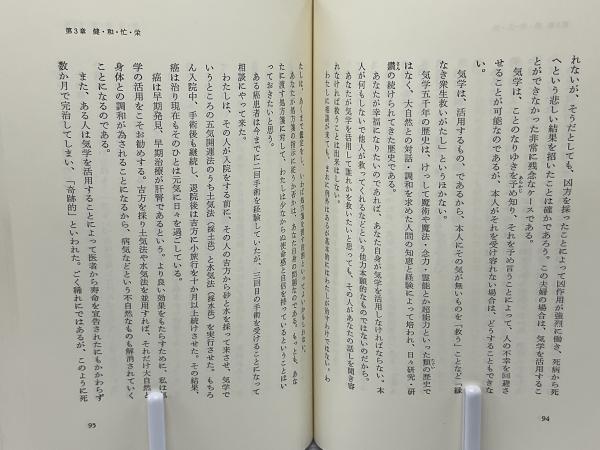 れないが、そうだとしても、凶方を採ったことによって凶作用が強烈に働き、死病から死
へという悲しい結果を招いたことは確かであろう。この夫婦の場合は、気学を活用するこ
とができなかった非常に残念なケースである。
気学は、ことのなりゆきを予め知り、それを予め言うことによって、人の不幸を回避さ
せることが可能なのであるが、本人がそれを受け容れない場合は、どうすることもできな
い。
気学は、活用するもの、であるから、本人にその気が無いものを「救う」ことなど「縁
なき衆生救いがたし」というほかない。
気学五千年の歴史は、けっして魔術や魔法・念力・霊能とか超能力といった類の歴史で
はなく、大自然との対話・調和を求めた人間の知恵と経験によって培われ、日々研究・研
鑽の続けられてきた歴史である。
あなたが幸福になりたいのであれば、あなた自身が気学を活用しなければならない。本
人が何もしないで他人が救ってくれるなどという他力本願的なものではないのだから。
あなたが気学を活用して誰れかを救いたいと思っても、その人があなたの話しを聞き容
れなければ救うことは出来はしない。
94
第3章 健・和・忙・栄
っておきたいと思う。
ある癌患者は今までに二回手術を経験していたが、三回目の手術を受けることになって
相談にやって来た。
わたしは、その人が入院をする前に、その人の吉方から砂と水を採って来させ、気学で
いうところの五気開運法のうち土気法(採土法)と水気法(採水法)を実行させた。もちろ
ん入院中、手術後も継続し、退院後は吉方に小旅行を十か月以上続けさせた。その結果、
癌は治り現在もそのひとは元気に日々を過ごしている。
癌は早期発見、早期治療が肝腎であるという。より良い効果をもたらすために、私は
学の活用をこそお勧めする。吉方を採り土気法や水気法を並用すれば、それだけ大自然と
身体との調和が為されることになるから、病気などという不自然なものも解消されていく
ことになるのである。
また、ある人は気学を活用することによって医者から寿命を宣告されたにもかかわらず
数か月で完治してしまい、「奇跡的」といわれた。ごく稀れにではあるが、このように死
95